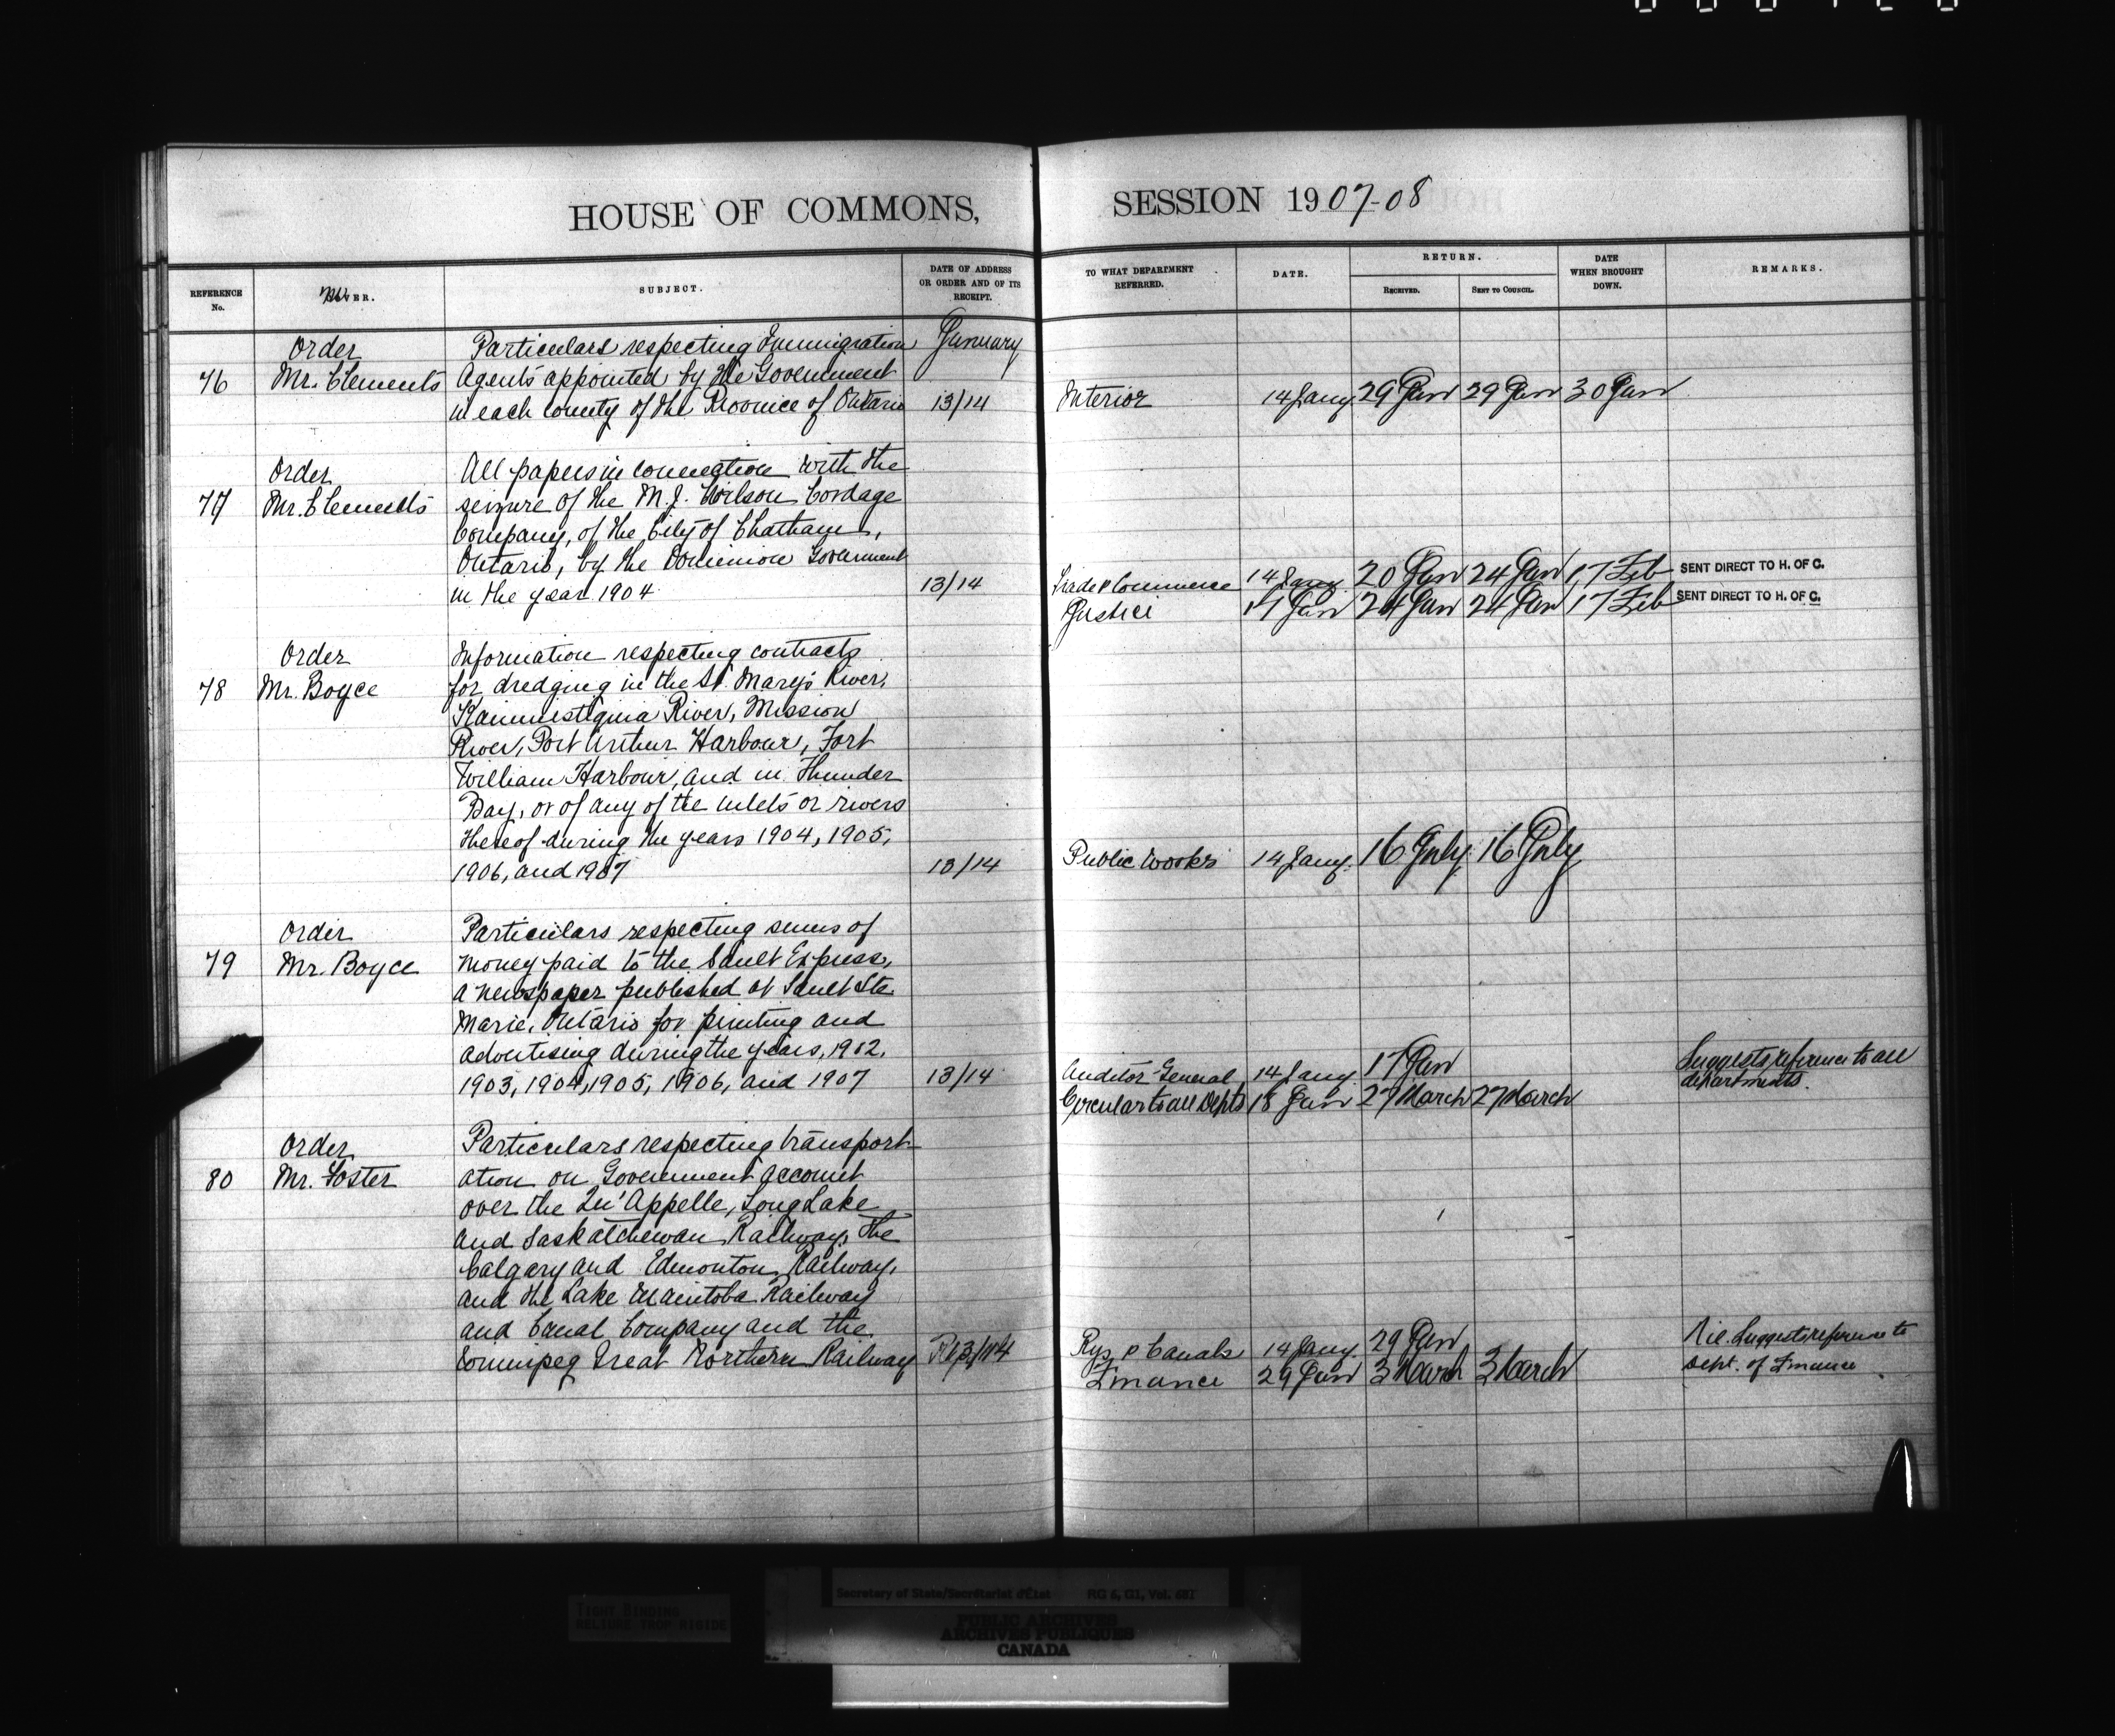 HOUSE OF COMMONS,
REFERENCE No.
SUBJECT.
DATE OF ADDRESS OR ORDER AND OF ITS RECEIPT.
Order Particulars respecting Immigration January
76 Mr. Clements Agents appointed by the Government
in each county of the Province of Ontario 13/14
Order All papers in connection with the
77 Mr. Clements seizure of the M.J. Wilson Cordage
Company, of the City of Chatham,
Ontario, by the Dominion Government
in the year 1904 13/14
Order Information respecting contracts
78 Mr. Boyce for dredging in the St. Mary's River,
River, Mission
River, Port Arthur Harbour, Fort
William Harbour, and in Thunder
Bay, or of any of the inlets or rivers
thereof during the years 1904, 1905,
1906, and 1907 13/14
Order Particulars respecting sums of
79 Mr. Boyce money paid to the Sault Express,
a newspaper published at Sault Ste
Marie, Ontario for printing and
advertising during the years, 1902,
1903, 1904, 1905, 1906, and 1907 13/14
Order Particulars respecting transport-
80 Mr. Foster ation on Government account
over the Qu'Appelle, Long Lake
and Saskatchewan Railway, the
Calgary and Edmonton Railway,
and the Lake Manitoba Railway
and Canal Company and the
Winnipeg Great Northern Railway 13/14
SESSION 1907-08
TO WHAT DEPARTMENT REFERRED.
DATE.
RETURN.
RECEIVED.
SENT TO COUNCIL.
DATE WHEN BROUGHT DOWN.
REMARKS.
Interior 14 Jany 29 Jan 29 Jan 30 Jan
Trade & Commerce 14 Jany 20 Jan 24 Jan 17 Feb SENT DIRECT TO H. OF C.
Justice 17 Jan 24 Jan 24 Jan 17 Feb SENT DIRECT TO H. OF C.
Public Works 14 Jany. 16 July 16 July
Auditor General 14 Jany 17 Jan Suggests reference to all departments.
Circular to all Depts 18 Jan 27 March 27 March
Rys & Canals 14 Jany. 29 Jan Nil. Suggests reference to
Finance 29 Jan 3 March 3 March Dept. of Finance
Secretary of State/Secrétariat d'État RG 6, G1, Vol. 681
TIGHT BINDING
RELIURE TROP RIGIDE
PUBLIC ARCHIVES
ARCHIVES PUBLIQUES
CANADA